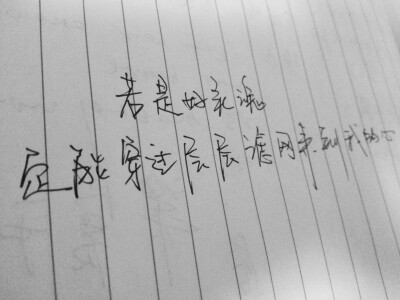 若是好永远
定能穿过层层滤网来到我的心